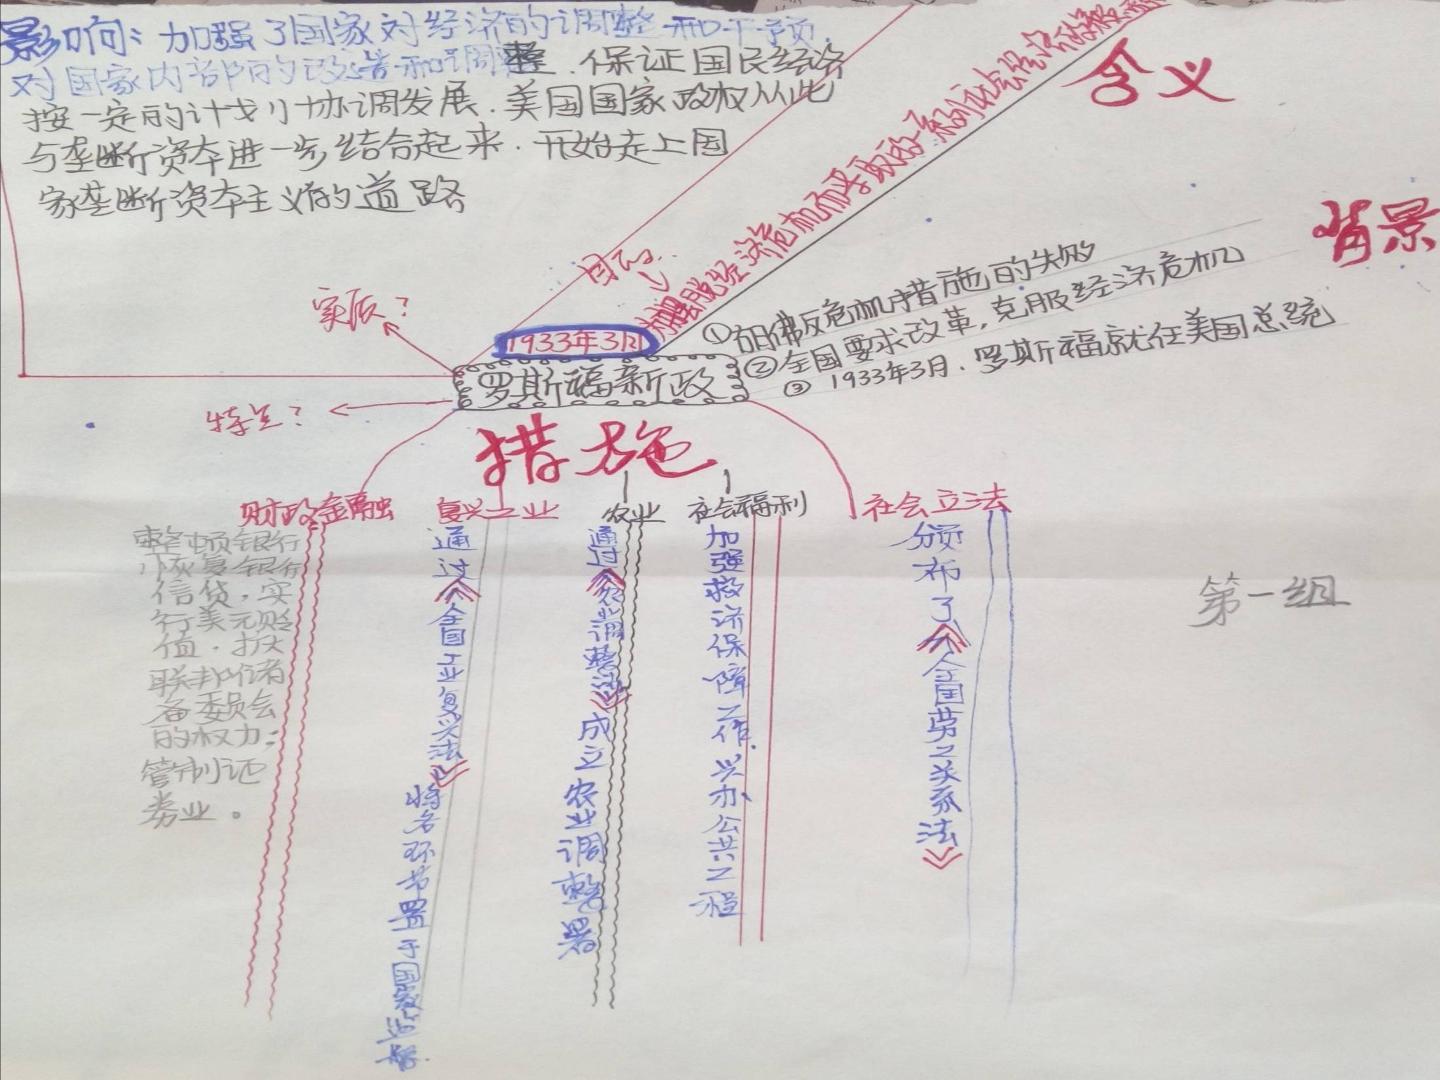 影响：加强了国家对经济的调整和干预，
对国家内部的改善和调整，保证国民经济
按一定的计划协调发展．美国国家政权从此
与垄断资本进一步结合起来．开始走上国
家垄断资本主义的道路
含义
目的
为摆脱经济危机而采取的一系列社会经济政策
背景
①胡佛反危机措施的失败
②全国要求改革，克服经济危机
③ 1933年3月．罗斯福就任美国总统
实质？
1933年3月
罗斯福新政
特点？
措施
财政金融
整顿银行
恢复银行
信贷，实
行美元贬
值．扩大
联邦储备
备委员会
的权力；
管制证
券业。
复兴工业
通过《全国工业复兴法》
将各环节置于国家
农业
通过《农业调整法》成立农业调整署
社会福利
加强救济保障工作．兴办公共工程
社会立法
颁布了《全国劳工关系法》
第一组